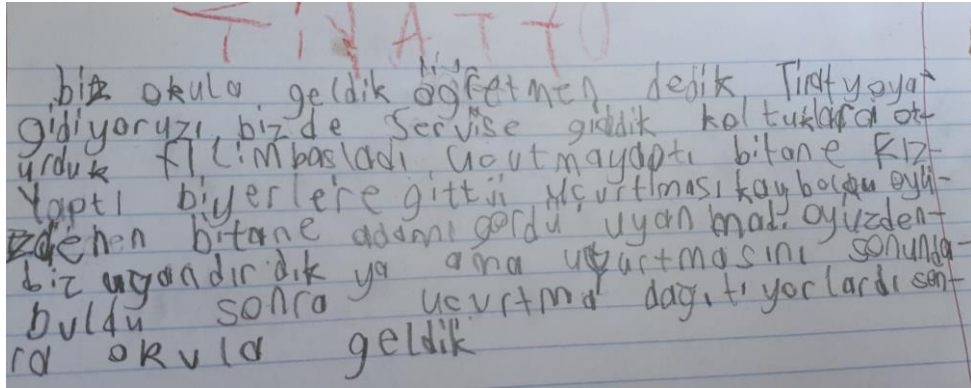 TiYATTO
biz okula geldik öğretmen dedik Tiratyoya
gidiyoruzı, bizde Servise giddik koltuklara ot-
urduk filim basladı, ucutmayaptı bitane KIZ-
Yaptı biyerlere gittii uçurtması kayboldu oyü-
zdenen bitane adamı gördü uyanmadı oyüzden-
biz uyandırdık ya ama uçurtmasını sonunda-
buldu sonra ucurtma dagıtıyorlardı son-
ra okula geldik